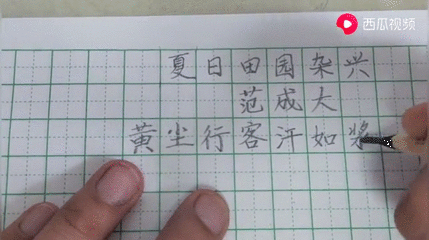 西瓜视频
夏日田园杂兴
范成大
黄尘行客汗如浆